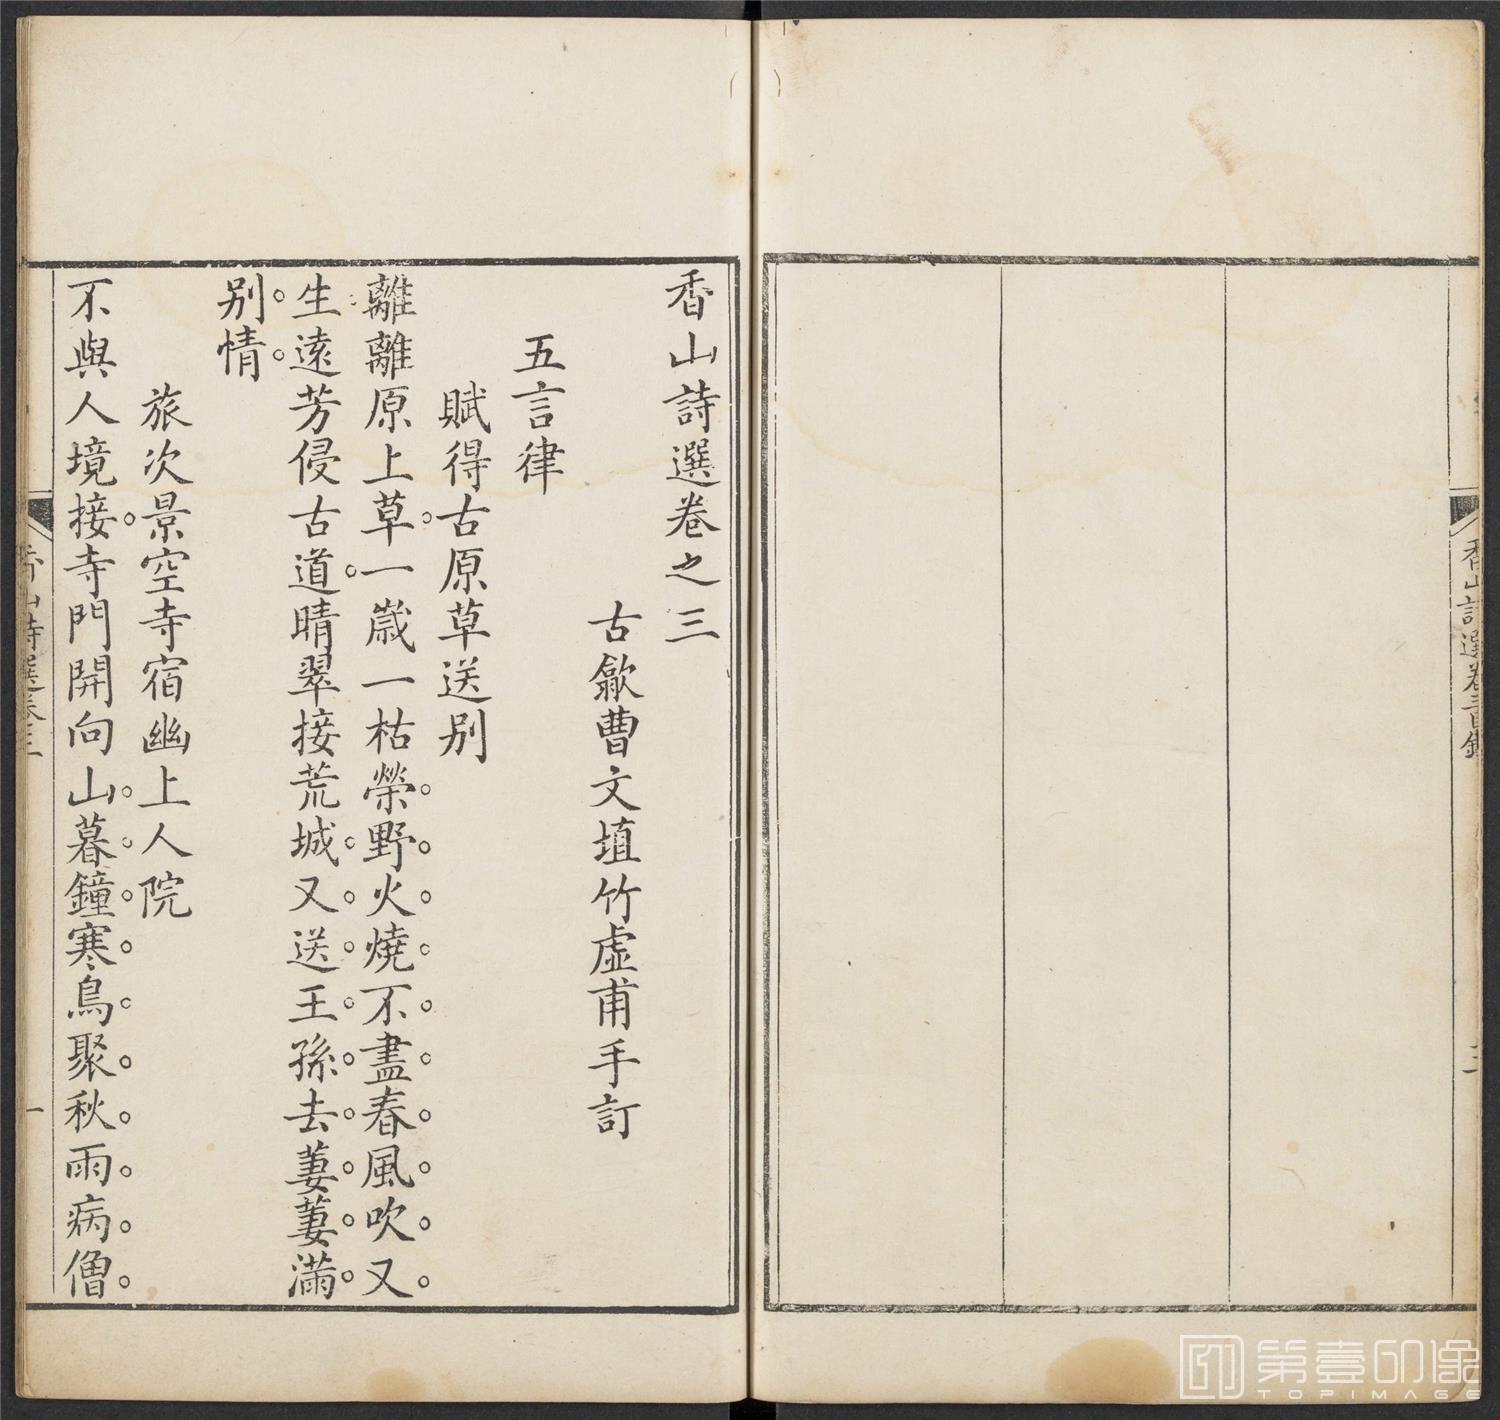 香山詩選卷三目錄
香山詩選卷之三
古歙曹文埴竹虛甫手訂
五言律
賦得古原草送别
離離原上草一歲一枯榮野火燒不盡春風吹又
生遠芳侵古道晴翠接荒城又送王孫去萋萋滿
别情
旅次景空寺宿幽上人院
不與人境接寺門開向山暮鐘寒鳥聚秋雨病僧
香山詩選卷三
一
第壹印像
TOPIMAGE